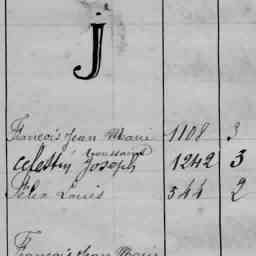 J
François Jean Marie 1108 3
toussaint
Celestin Joseph 1242 3
Félix Louis 544 2
François Jean Marie